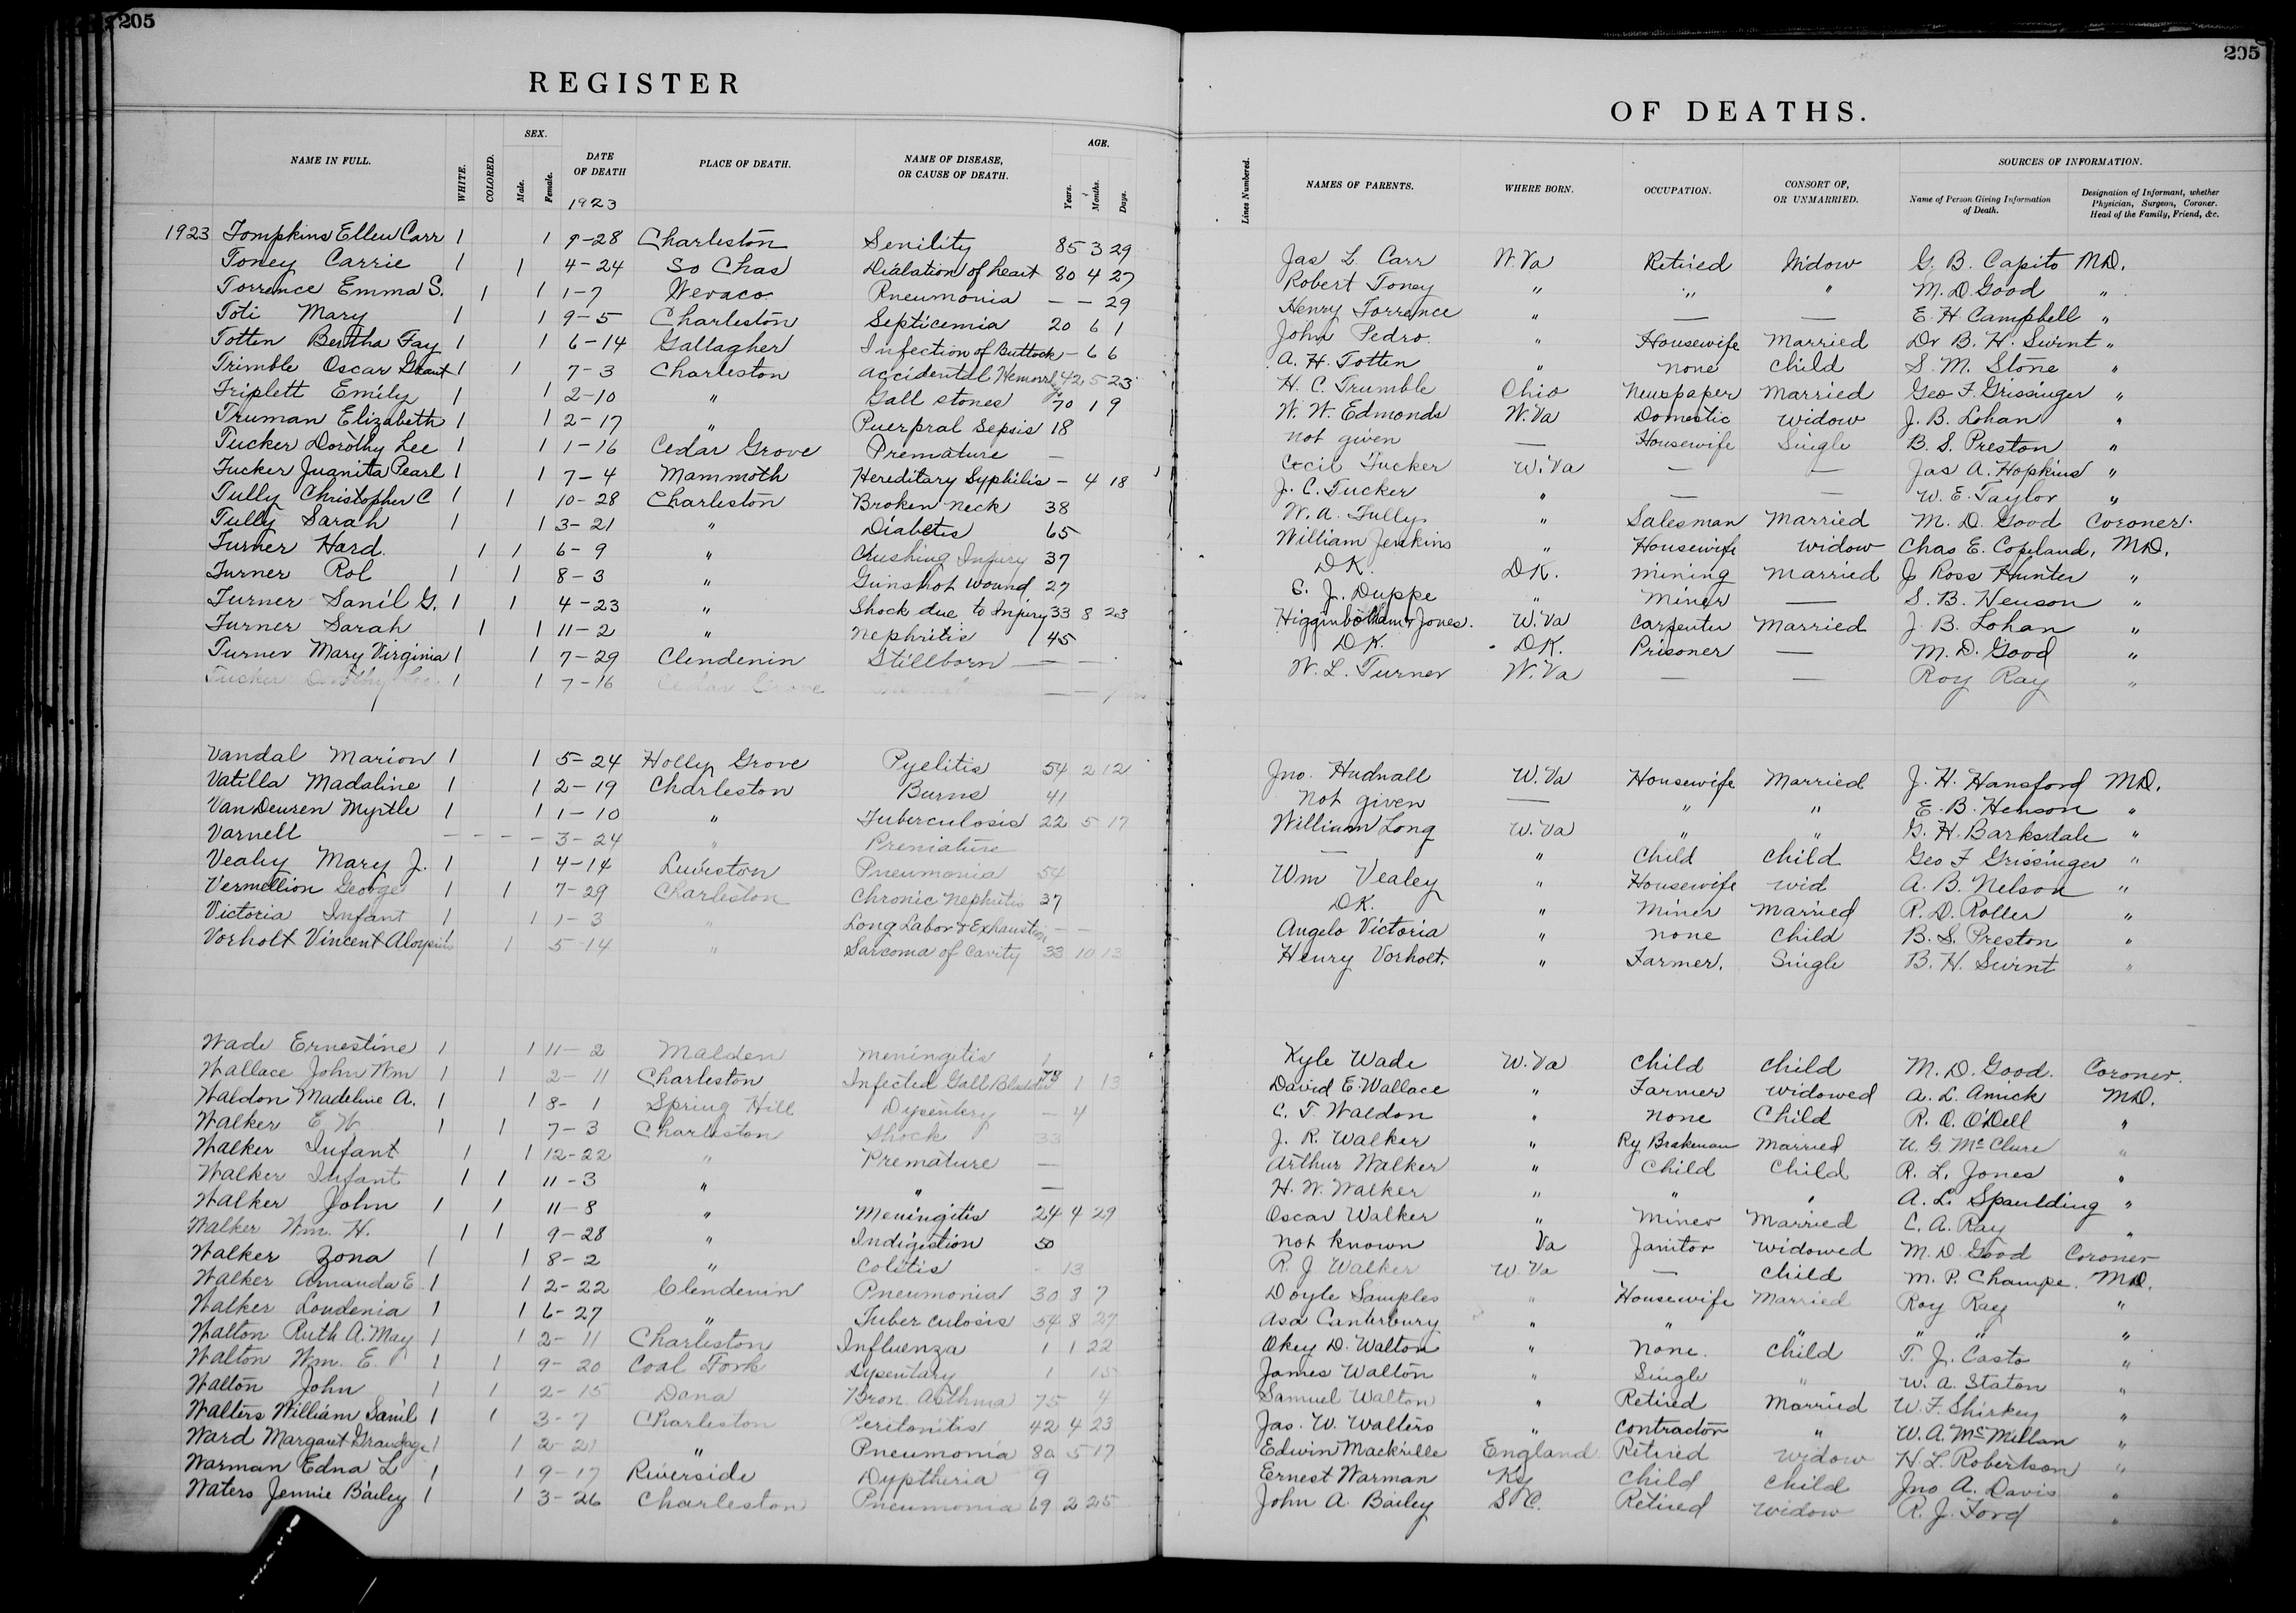 205
REGISTER
NAME IN FULL. WHITE. COLORED. SEX. Male. Female. DATE OF DEATH 1923 PLACE OF DEATH. NAME OF DISEASE, OR CAUSE OF DEATH. AGE. Years. Months. Days.
1923 Tompkins Ellen Carr 1 1 9-28 Charleston Senility 85 3 29
Toney Carrie 1 1 4-24 So Chas Dialation of heart 80 4 27
Torrence Emma S. 1 1 1-7 Wevaco Pneumonia — — 29
Toti Mary 1 1 9-5 Charleston Septicemia 20 6 1
Totten Bertha Fay 1 1 6-14 Gallagher Infection of Buttock — 6 6
Trimble Oscar Grant 1 1 7-3 Charleston accidental 42 5 23
Triplett Emily 1 1 2-10 " Gall stones 70 1 9
Truman Elizabeth 1 1 2-17 " Puerpral Sepsis 18
Tucker Dorothy Lee 1 1 1-16 Cedar Grove Premature —
Tucker Juanita Pearl 1 1 7-4 Mammoth Hereditary Syphilis — 4 18
Tully Christopher C 1 1 10-28 Charleston Broken neck 38
Tully Sarah 1 1 3-21 " Diabetis 65
Turner Hard. 1 1 6-9 " Crushing Injury 37
Turner Rol 1 1 8-3 " Gunshot wound 27
Turner Sam'l G. 1 1 4-23 " Shock due to Injury 33 8 23
Turner Sarah 1 1 11-2 " Nephritis 45
Turner Mary Virginia 1 1 7-29 Clendenin Stillborn — —
Tucker Dorothy Lee 1 1 7-16 Cedar Grove — —
Vandal Marion 1 1 5-24 Holly Grove Pyelitis 54 2 12
Vatilla Madaline 1 1 2-19 Charleston Burns 41
VanDeuren Myrtle 1 1 1-10 " Tuberculosis 22 5 17
Varnell - - - - 3-24 " Premature
Vealey Mary J. 1 1 4-14 Lewiston Pneumonia 54
Vermellion George 1 1 7-29 Charleston Chronic Nephritis 37
Victoria Infant 1 1 1-3 " Long Labor & Exhaustion — —
Vorholt Vincent Aloysius 1 5-14 " Sarcoma of Cavity 33 10 13
Wade Ernestine 1 1 11-2 Malden Meningitis 1
Wallace John Wm 1 1 2-11 Charleston Infected Gall Bladder 78 1 13
Waldon Madeline A. 1 1 8-1 Spring Hill Dysentery — 4
Walker E W 1 1 7-3 Charleston Shock 33
Walker Infant 1 1 12-22 " Premature —
Walker Infant 1 1 11-3 " " —
Walker John 1 1 11-8 " Meningitis 24 4 29
Walker Wm. H. 1 1 9-28 " Indigestion 50
Walker Zona 1 1 8-2 " Colitis - 13
Walker Amanda E. 1 1 2-22 Clendenin Pneumonia 30 8 7
Walker Loudenia 1 1 6-27 " Tuberculosis 54 8 27
Walton Ruth A. May 1 1 2-11 Charleston Influenza 1 1 22
Walton Wm. E. 1 1 9-20 Coal Fork Dysentary 1 15
Walton John 1 1 2-15 Dana Bron. Asthma 75 4
Walters William Sam'l 1 1 3-7 Charleston Peritonitis 42 4 23
Ward Margaret 1 1 2-21 " Pneumonia 80 5 17
Warman Edna L 1 1 9-17 Riverside Dyptheria 9
Waters Jennie Bailey 1 1 3-26 Charleston Pneumonia 69 2 25
205
OF DEATHS.
Lines Numbered. NAMES OF PARENTS. WHERE BORN. OCCUPATION. CONSORT OF, OR UNMARRIED. SOURCES OF INFORMATION. Name of Person Giving Information of Death. Designation of Informant, whether Physician, Surgeon, Coroner. Head of the Family, Friend, &c.
Jas L. Carr W.Va Retired Widow G. B. Capito M.D.
Robert Toney " " " M. D. Good "
Henry Torrence " — — E. H Campbell "
John Pedro. " Housewife Married Dr B. H. Swint "
A. H. Totten " none child S. M. Stone "
H. C. Trumble Ohio Newspaper married Geo F. Grissinger "
W. W. Edmonds W.Va Domestic widow J. B. Lohan "
not given — Housewife Single B. S. Preston "
Cecil Tucker W.Va — — Jas A. Hopkins "
J. C. Tucker " — — W. E. Taylor "
W. A. Tully " Salesman Married M. D. Good Coroner.
William Jenkins " Housewife widow Chas E. Copeland, M.D.
D.K. D.K. mining married J. Ross Hunter "
E. J. Duppe " miner — S. B. Henson "
Higginbotham & Jones. W.Va Carpenter Married J. B. Lohan "
D.K. D.K. Prisoner — M. D. Good "
W. L. Turner W.Va — — Roy Ray "
Jno. Hudnall W.Va Housewife Married J. H. Hansford M.D.
not given — " " E. B. Henson "
William Long W.Va " " G. H. Barksdale "
— " Child child Geo F Grissinger "
Wm Vealey " Housewife wid A. B. Nelson "
D.K. " Miner married P. D. Roller "
Angelo Victoria " none child B. S. Preston "
Henry Vorholt. " Farmer. Single B. H. Swint "
Kyle Wade W.Va child child M. D. Good. Coroner.
David E. Wallace " Farmer widowed A. L. Amick M.D.
C. T. Waldon " none Child R. O. O'Dell "
J. R. Walker " Ry Brakeman married U. G. McClure "
Arthur Walker " child child R. L. Jones "
H. W. Walker " " " A. L. Spaulding "
Oscar Walker " miner married C. A. Ray "
not known Va Janitor widowed M. D. Good Coroner
R. J Walker W.Va — child M. P. Champe. M.D.
Doyle Samples " Housewife Married Roy Ray "
Asa Canterbury " " " " " "
Okey D. Walton " none. child T. J. Casto "
James Walton " Single " W. A. Staton "
Samuel Walton " Retired Married W. F. Shirkey "
Jas. W. Walters " contractor " W. A. McMillan "
Edwin Mackrille England Retired widow H. L. Robertson "
Ernest Warman Ky child child Jno A. Davis "
John A. Bailey S.C. Retired widow R. J. Ford "